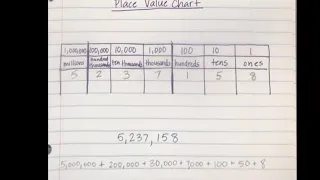 Place Value Chart
1,000,000 100,000 10,000 1,000 100 10 1
millions hundred thousands ten thousands thousands hundreds tens ones
5 2 3 7 1 5 8
5,237,158
5,000,000 + 200,000 + 30,000 + 7000 + 100 + 50 + 8